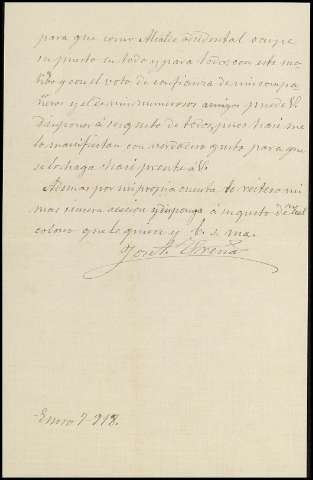 para que como Alcalde accidental ocupe
su puesto en todo y para todos; con este mo
tibo y con el voto de confianza de mis compa
ñeros y el de mis numerosos amigos puede V.
Disponer á su gusto de todos, pues haci me
lo manifiestan con verdadero gusto para que
se lo haga haci presente á V.
Ademas por mi propia cuenta le reitero mi
mas sincera y disponga á su gusto de este leal
que le quiere y b. s. ma.
José
Enero 7-918.